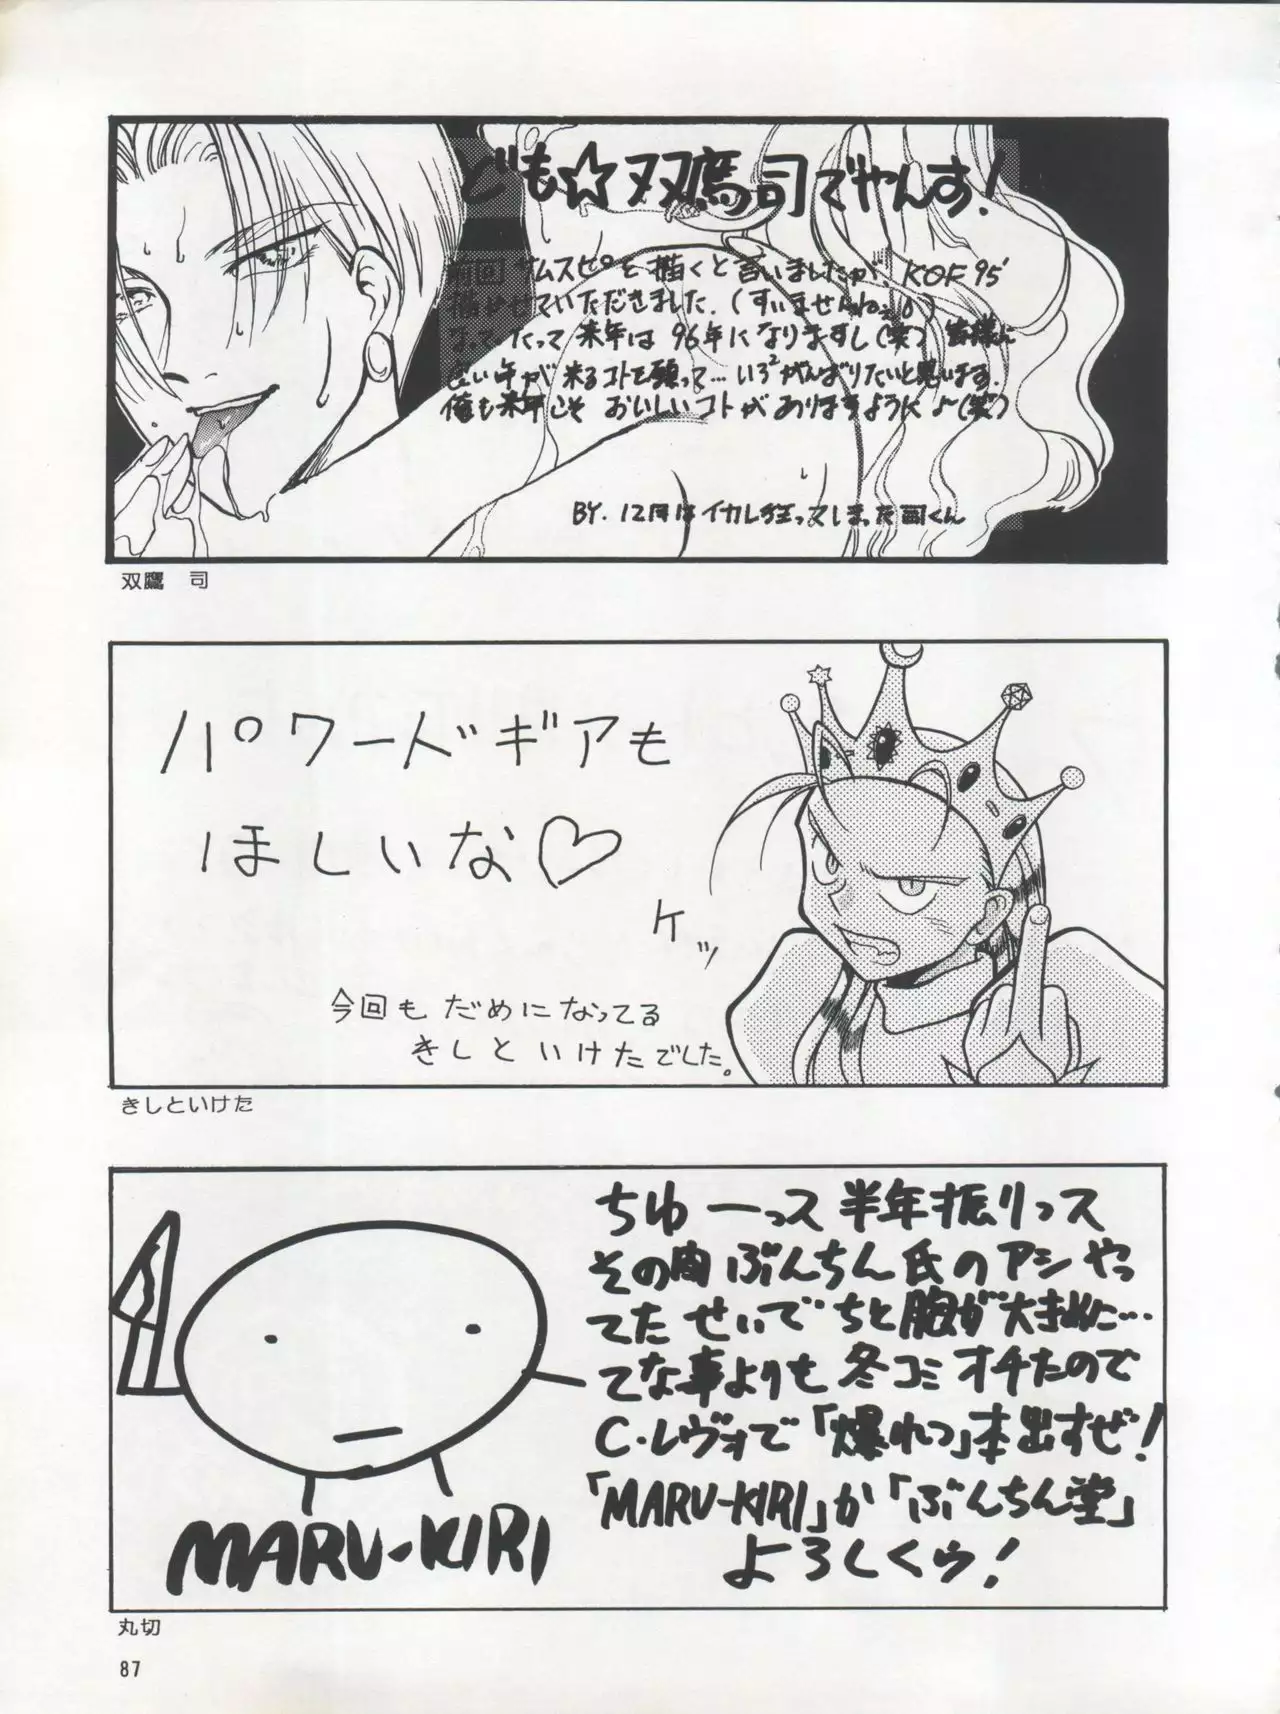 ども☆双鷹司でやんす!
前回サムスピを描くと言いましたが KOF95'
描かせていただきました.(すいませんねぇ)
なってたって来年は96年になりますし(笑) 皆様に
良い年が来るコトを願って…いろ²がんばりたいと思います.
俺も来年こそ おいしいコトがありますように〜(笑)
BY. 12月はイカレ狂ってしまった司くん
双鷹 司
パワードギアも
ほしいな♡
ケッ
今回もだめになってる
きしといけたでした。
きしといけた
ちゆーっス 半年振りっス
その間ぶんちん氏のアシやっ
てたせいでちと胸が大きめに…
てな事よりも冬コミオチたので
C・レヴォで「爆れつ」本出すぜ!
「MARU-KIRI」か「ぶんちん堂」
よろしくゥ!
MARU-KIRI
丸切
87